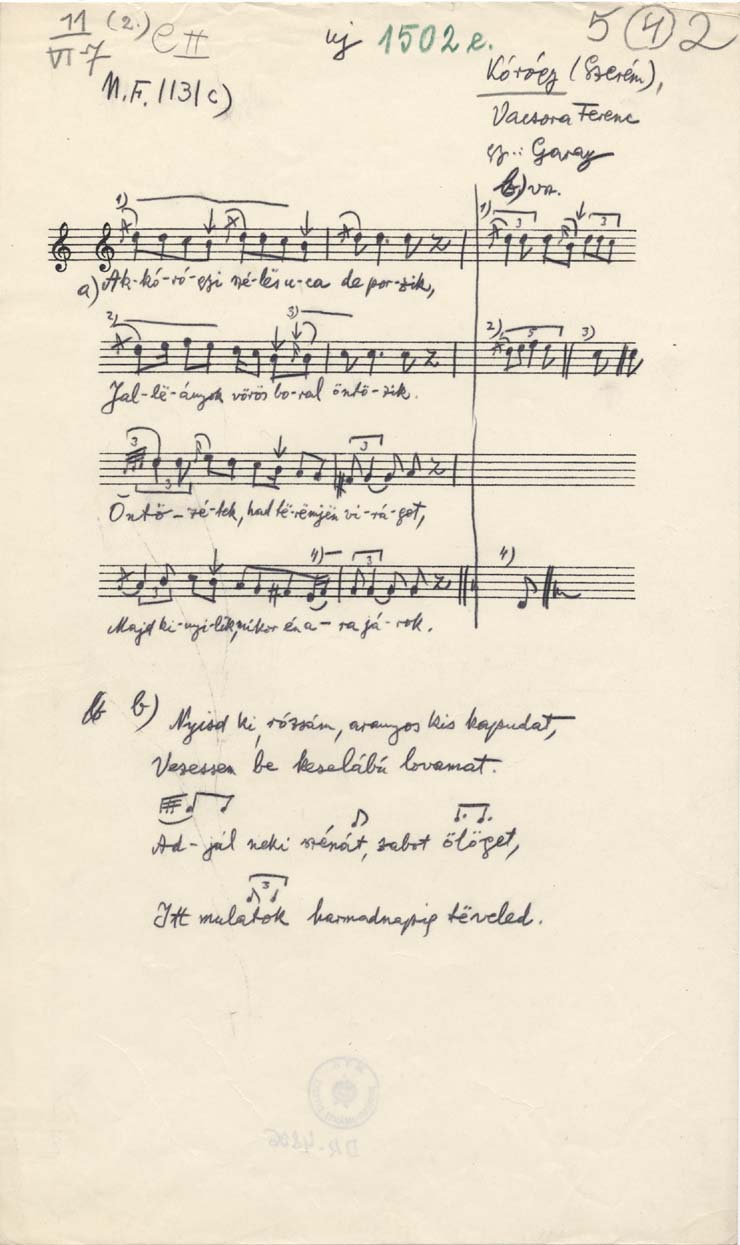 11 (2.) C II
VI-7
új 1502 e.
5 (4) 2
M.F. 1131 c)
Kórógy (Szerém),
Vacsora Ferenc
gy.: Garay
b) vs.
1)
1) 3 3
a) Ak-kó-ró-gyi szé-lës u-ca de por-zik,
2) 3)
2) 5 3)
Jal-lë-ányok vörös bo-ral öntö-zik.
3 3 3
Öntö-zé-tek, had të-rëmjën vi-rá-get,
3 4) 3
4)
Majd ki-nyi-lik, mikor én a-ra já-rok.
b) Nyisd ki, rózsám, aranyos kis kapudat,
Vezessen be keselábú lovamat.
Ad-jál neki szénát, zabot ölöget,
3
Itt mulatok harmadnapig tëveled.
DR-4806